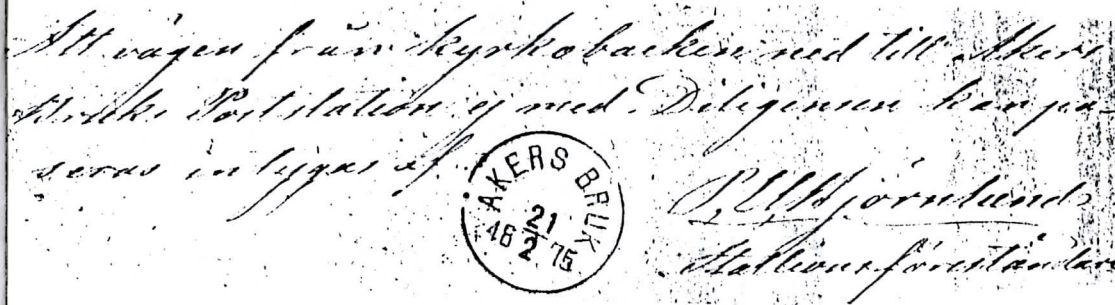 Att vägen från kyrkobacken ned till Åkers
Bruks Poststation ej med Diligensen kan pa-
seras intygas af
AKERS BRUK
21
2
46 75
Björnlund
Stationsföreståndare